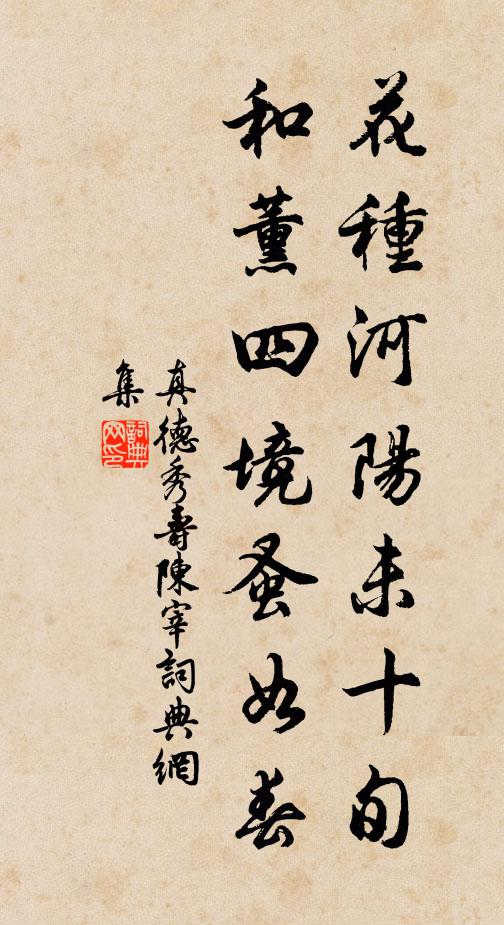 花種河陽未十旬
和薰四境蚤如春
真德秀壽陳宰詞典網
集
詞典
网印